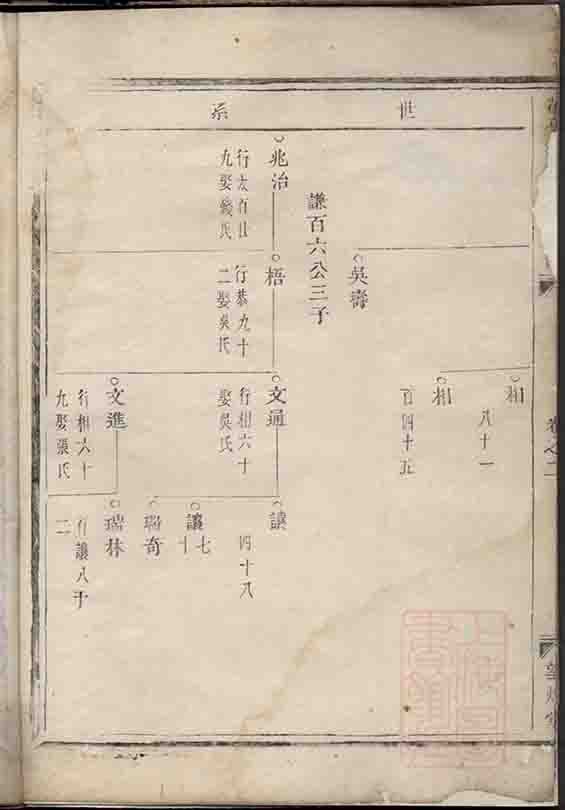 世系
相
八十一
相
百四十五
吳壽
謙百六公三子
兆治
九娶戴氏
梧
行恭九十
二娶吳氏
文通
行相六十
娶吳氏
讓
四十八
讓七
十
瑞奇
文進
行相六十
九娶張氏
瑞林
行讓八十
二
卷之二